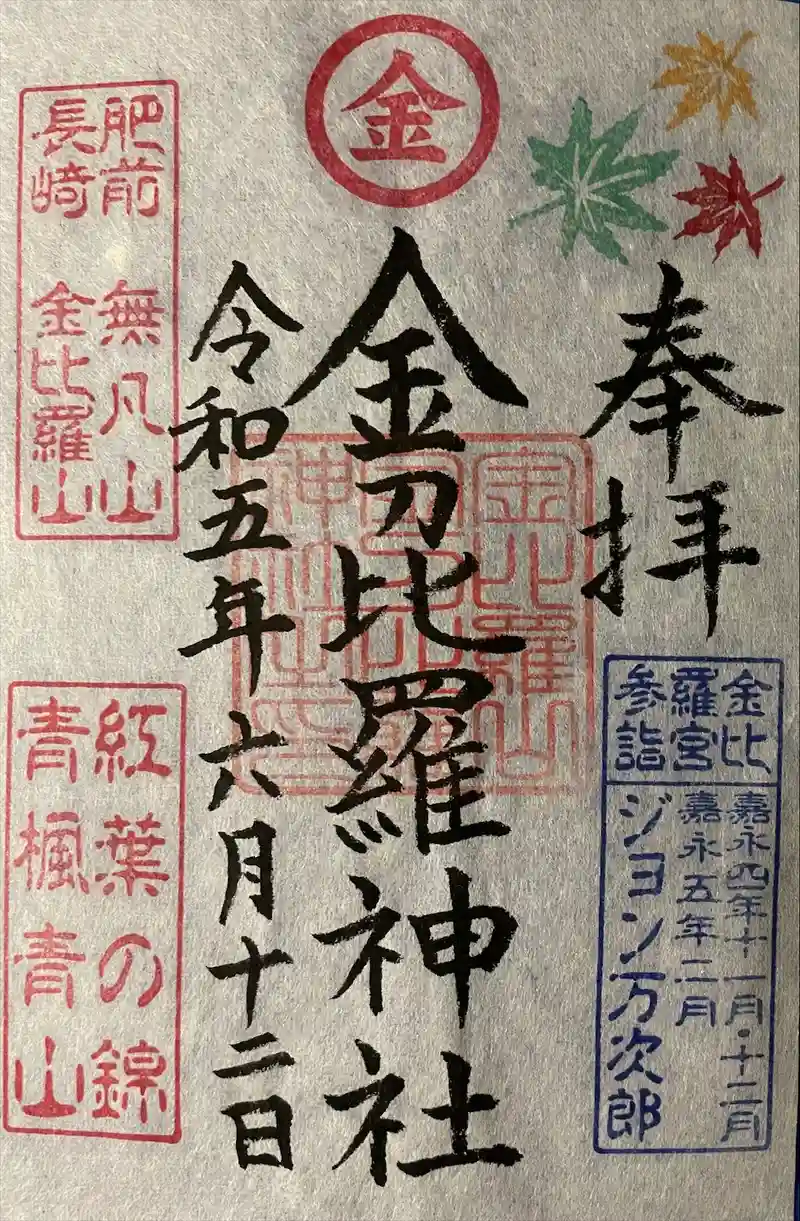 金
奉拝
金比
羅宮
参詣
嘉永四年十一月・十二月
嘉永五年二月
ジヨン万次郎
金刀比羅神社
金比羅山
神社之印
令和五年六月十二日
肥前 無凡山
長崎 金比羅山
紅葉の錦
青楓青山